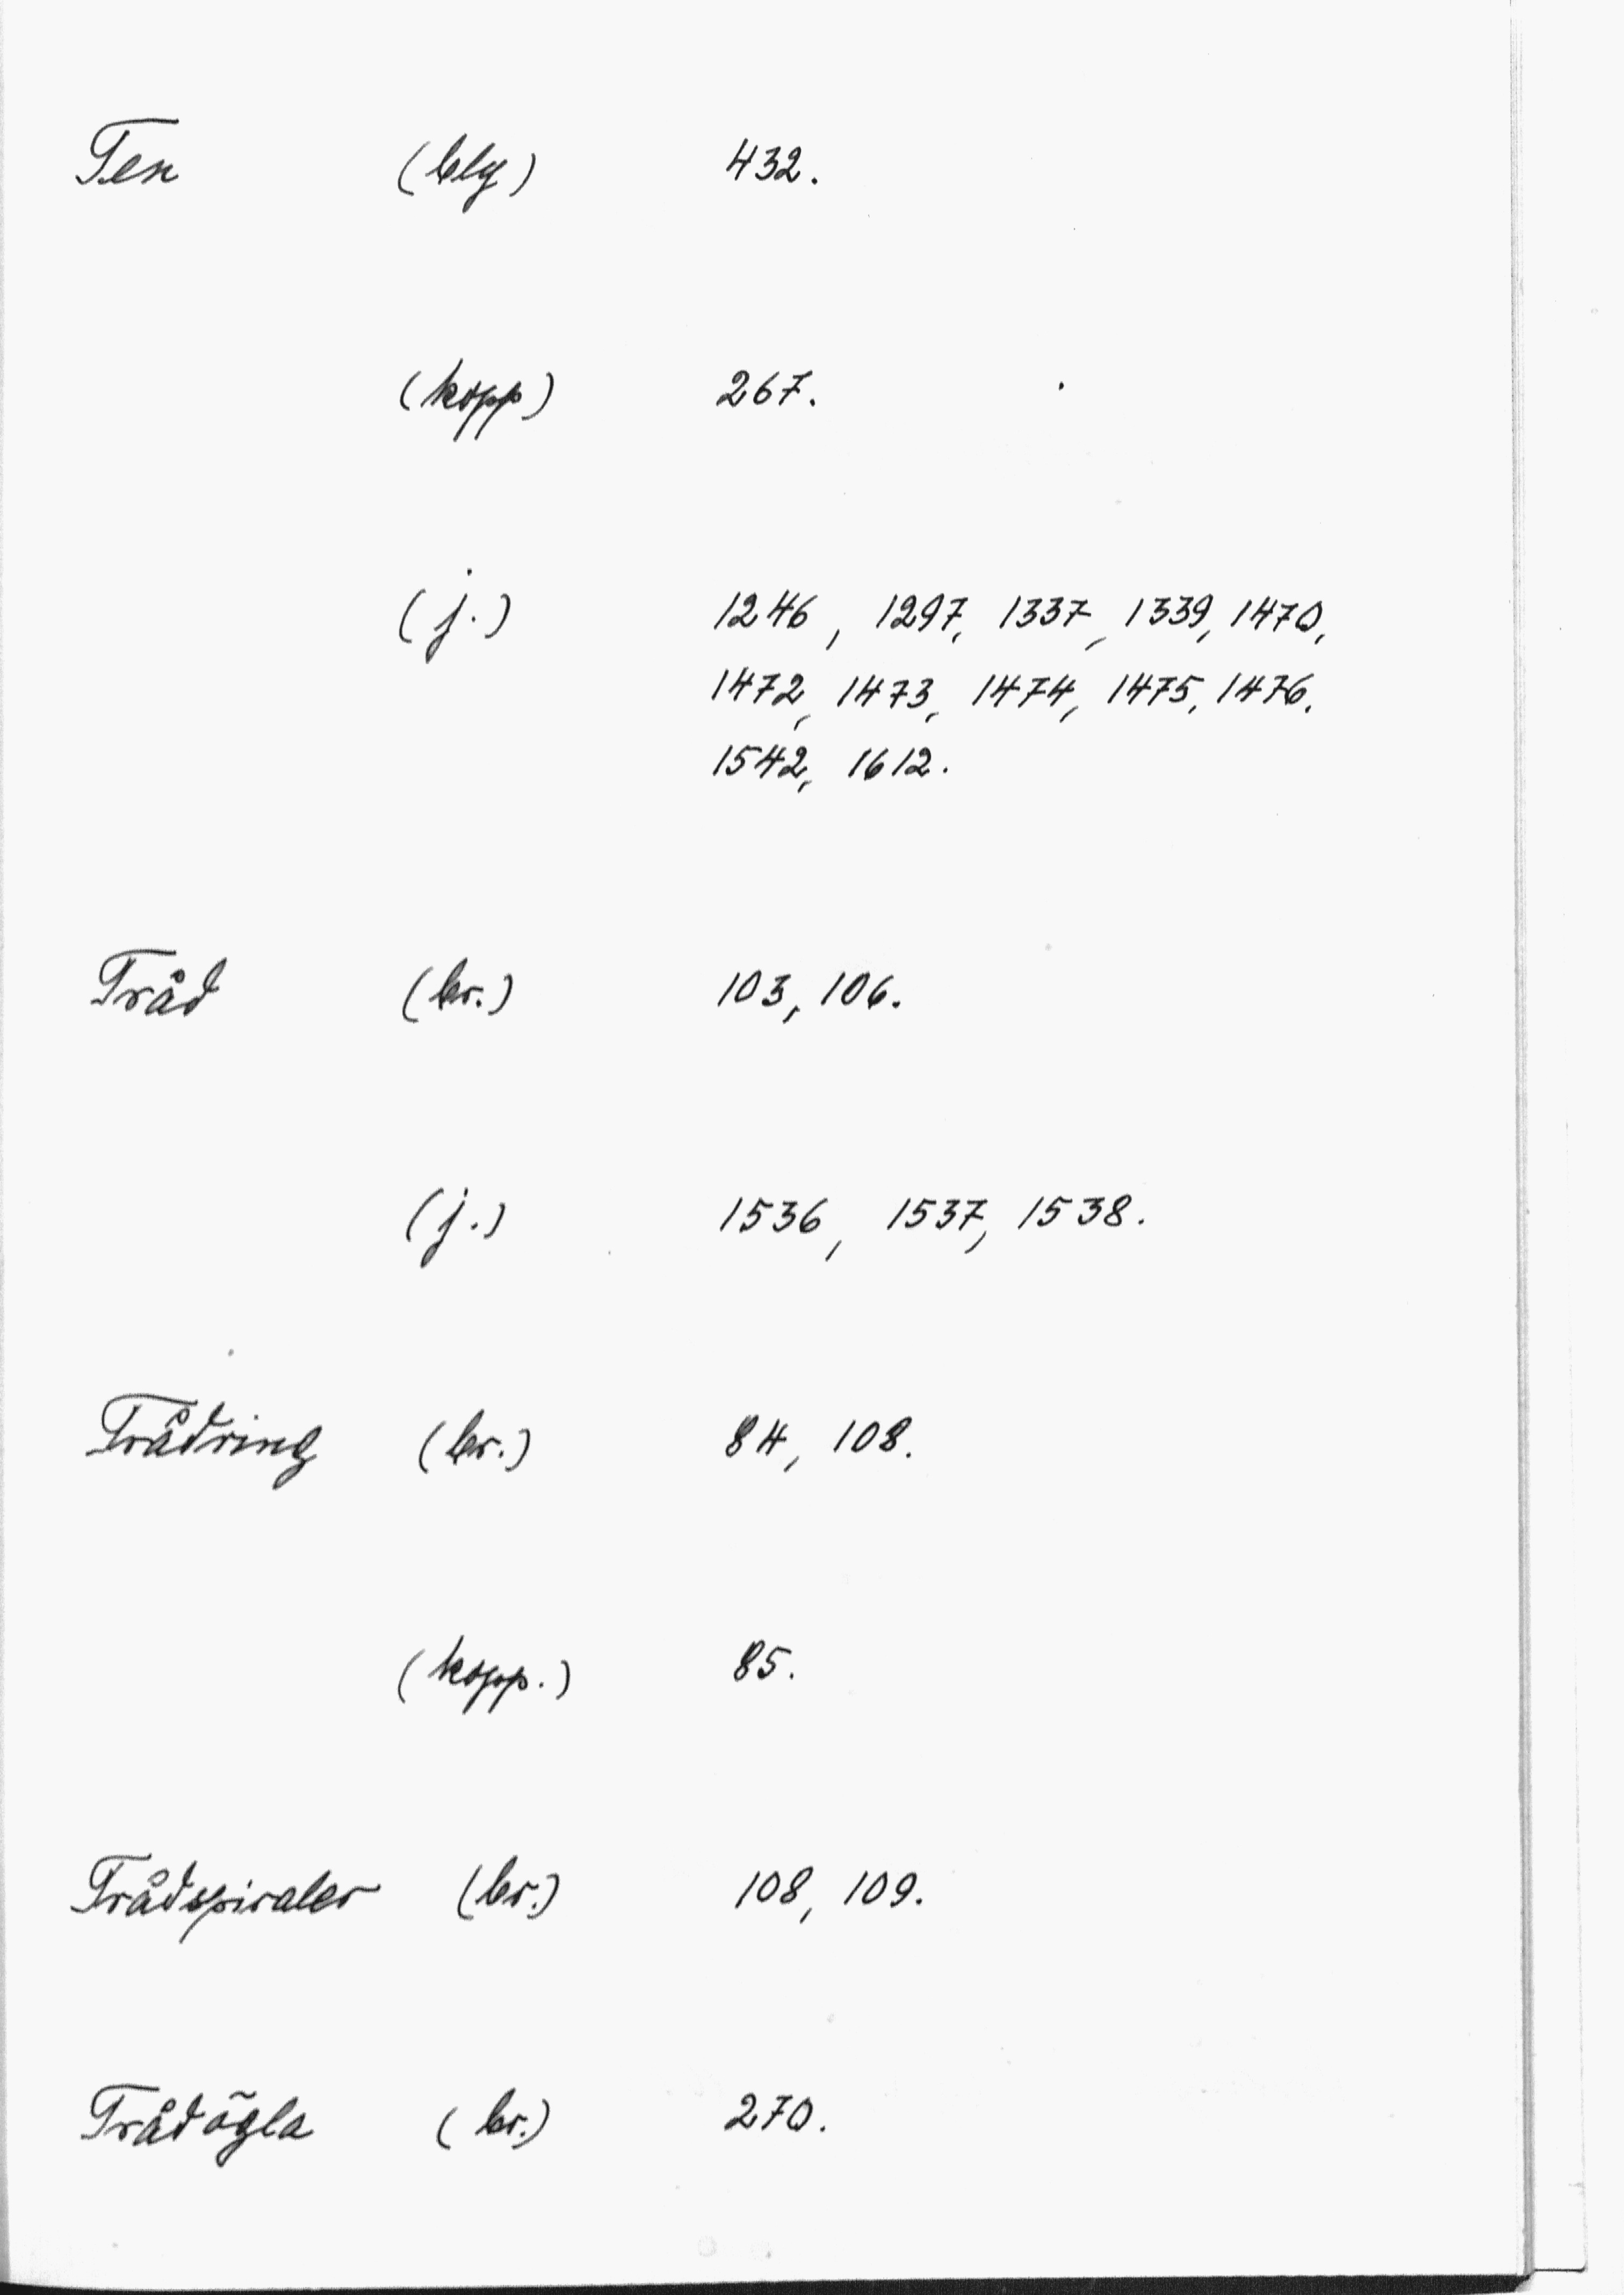 Ten (bly) 432.
(kopp) 267.
(j.) 1246, 1297, 1337, 1339, 1470,
1472, 1473, 1474, 1475, 1476,
1542, 1612.
Tråd (br.) 103, 106.
(j.) 1536, 1537, 1538.
Trådring (br.) 84, 108.
(kopp.) 85.
Trådspiraler (br.) 108, 109.
Trådögla (br.) 270.